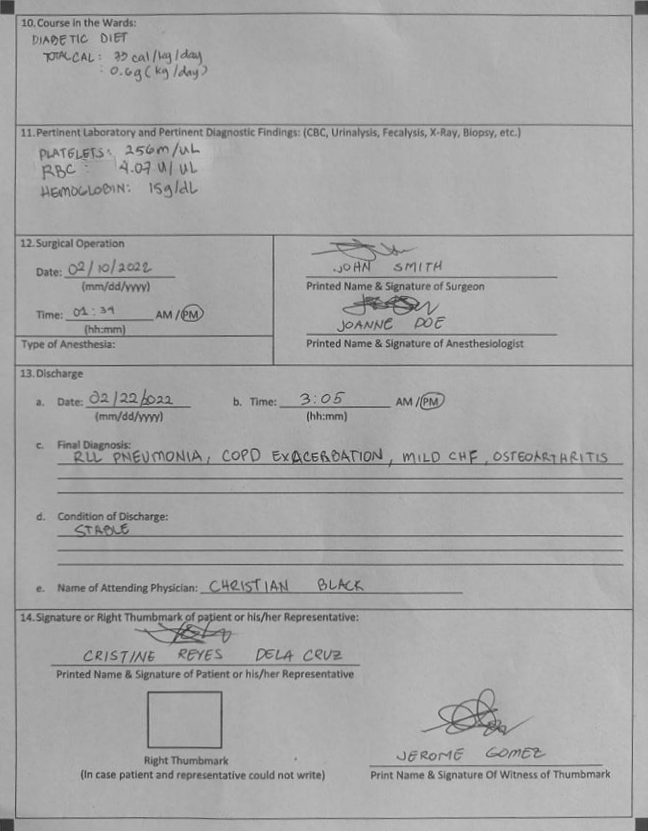 10. Course in the Wards:
DIABETIC DIET
TOTAL CAL: 35 cal/kg/day
: 0.6g (kg/day)
11. Pertinent Laboratory and Pertinent Diagnostic Findings: (CBC, Urinalysis, Fecalysis, X-Ray, Biopsy, etc.)
PLATELETS: 256m/uL
RBC : 4.07 U/UL
HEMOGLOBIN: 15g/dL
12. Surgical Operation
Date: 02/10/2022
(mm/dd/yyyy)
Time: 01:39 AM / PM
(hh:mm)
Type of Anesthesia:
JOHN SMITH
Printed Name & Signature of Surgeon
JOANNE DOE
Printed Name & Signature of Anesthesiologist
13. Discharge
a. Date: 02/22/2022 b. Time: 3:05 AM / PM
(mm/dd/yyyy) (hh:mm)
c. Final Diagnosis:
RLL PNEUMONIA, COPD EXACERBATION, MILD CHF, OSTEOARTHRITIS
d. Condition of Discharge:
STABLE
e. Name of Attending Physician: CHRISTIAN BLACK
14. Signature or Right Thumbmark of patient or his/her Representative:
CRISTINE REYES DELA CRUZ
Printed Name & Signature of Patient or his/her Representative
Right Thumbmark
(In case patient and representative could not write)
JEROME GOMEZ
Print Name & Signature Of Witness of Thumbmark